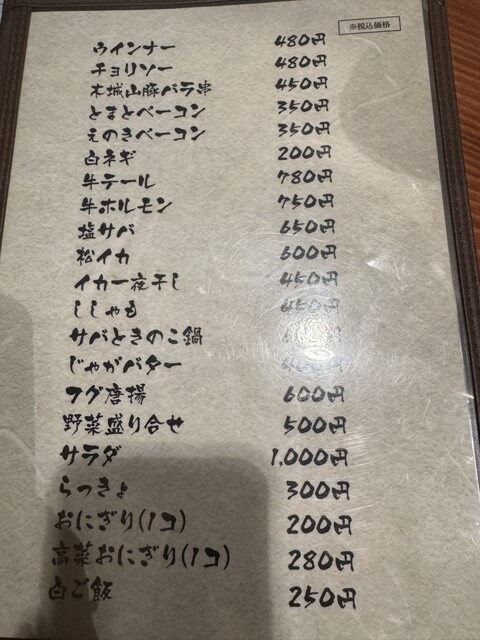 ※税込価格
ウインナー 480円
チョリソー 480円
木城山豚バラ串 450円
とまとベーコン 350円
えのきベーコン 350円
白ネギ 200円
牛テール 780円
牛ホルモン 750円
塩サバ 650円
松イカ 600円
イカ一夜干し 450円
ししゃも 450円
サバときのこ鍋
じゃがバター
フグ唐揚 600円
野菜盛り合せ 500円
サラダ 1,000円
らっきょ 300円
おにぎり(1コ) 200円
高菜おにぎり(1コ) 280円
白ご飯 250円